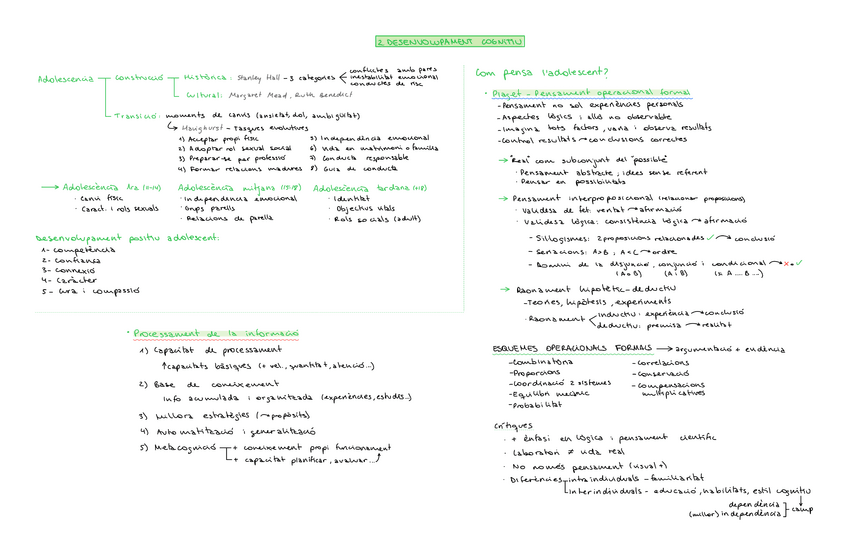 2 DESENVOLUPAMENT COGNITIU
Adolescencia
Construcció
Històrica: Stanley Hall - 3 categories
conflictes amb pares
inestabilitat emocional
conductes de risc
Cultural: Margaret Mead, Ruth Benedict
Transició: moments de canvis (ansietat, dol, ambigüitat)
Havighurst - Tasques evolutives
1) Acceptar propi físic
2) Adoptar rol sexual social
3) Preparar-se per professió
4) Formar relacions madures
5) Independència emocional
6) Vida en matrimoni o família
7) Conducta responsable
8) Guia de conducta
→ Adolescència 1ra (11-14)
· Canvi físic
· Caract. i rols sexuals
Adolescència mitjana (15-18)
· Independència emocional
· Grups parells
· Relacions de parella
Adolescència tardana (+18)
· Identitat
· Objectius vitals
· Rols socials (adult)
Desenvolupament positiu adolescent:
1- Competència
2- Confiança
3- Connexió
4- Caràcter
5- Cura i compassió
· Processament de la informació
1) Capacitat de processament
↑capacitats bàsiques (+ vel., quantitat, atenció...)
2) Base de coneixement
Info acumulada i organitzada (experiències, estudis...)
3) Millora estratègies (→propòsits)
4) Automatització i generalització
5) Metacognició
+ coneixement propi funcionament
+ capacitat planificar, avaluar...
Com pensa l'adolescent?
· Piaget - Pensament operacional formal
-Pensament no sol experiències personals
-Aspectes lògics i allò no observable
-Imagina tots factors, varia i observa resultats
-Control resultats → conclusions correctes
→ "Real" com subconjunt del "possible"
· Pensament abstracte, idees sense referent
· Pensar en possibilitats
→ Pensament interproposicional (relacionar proposicions)
· Validesa de fet: veritat → afirmació
· Validesa lògica: consistència lògica → afirmació
- Sil·logismes: 2 proposicions relacionades ✓ → conclusió
- Seriacions: A>B ; A<C → ordre
- Domini de la disjunció, conjunció i condicional → × • ✓
(A o B) (A i B) (si A ... B ...)
→ Raonament hipotètic-deductiu
-Teories, hipòtesis, experiments
·Raonament
inductiu: experiència → conclusió
deductiu: premisa → realitat
ESQUEMES OPERACIONALS FORMALS → argumentació + evidència
-Combinatòria
-Proporcions
-Coordinació 2 sistemes
-Equilibri mecànic
-Probabilitat
-Correlacions
-Conservació
-Compensacions
multiplicatives
Crítiques
· + èmfasi en lògica i pensament científic
· Laboratori ≠ vida real
· No només pensament (usual+)
· Diferències
intraindividuals - familiaritat
Interindividuals - educació, habilitats, estil cognitiu
dependència
(millor) independència
camp